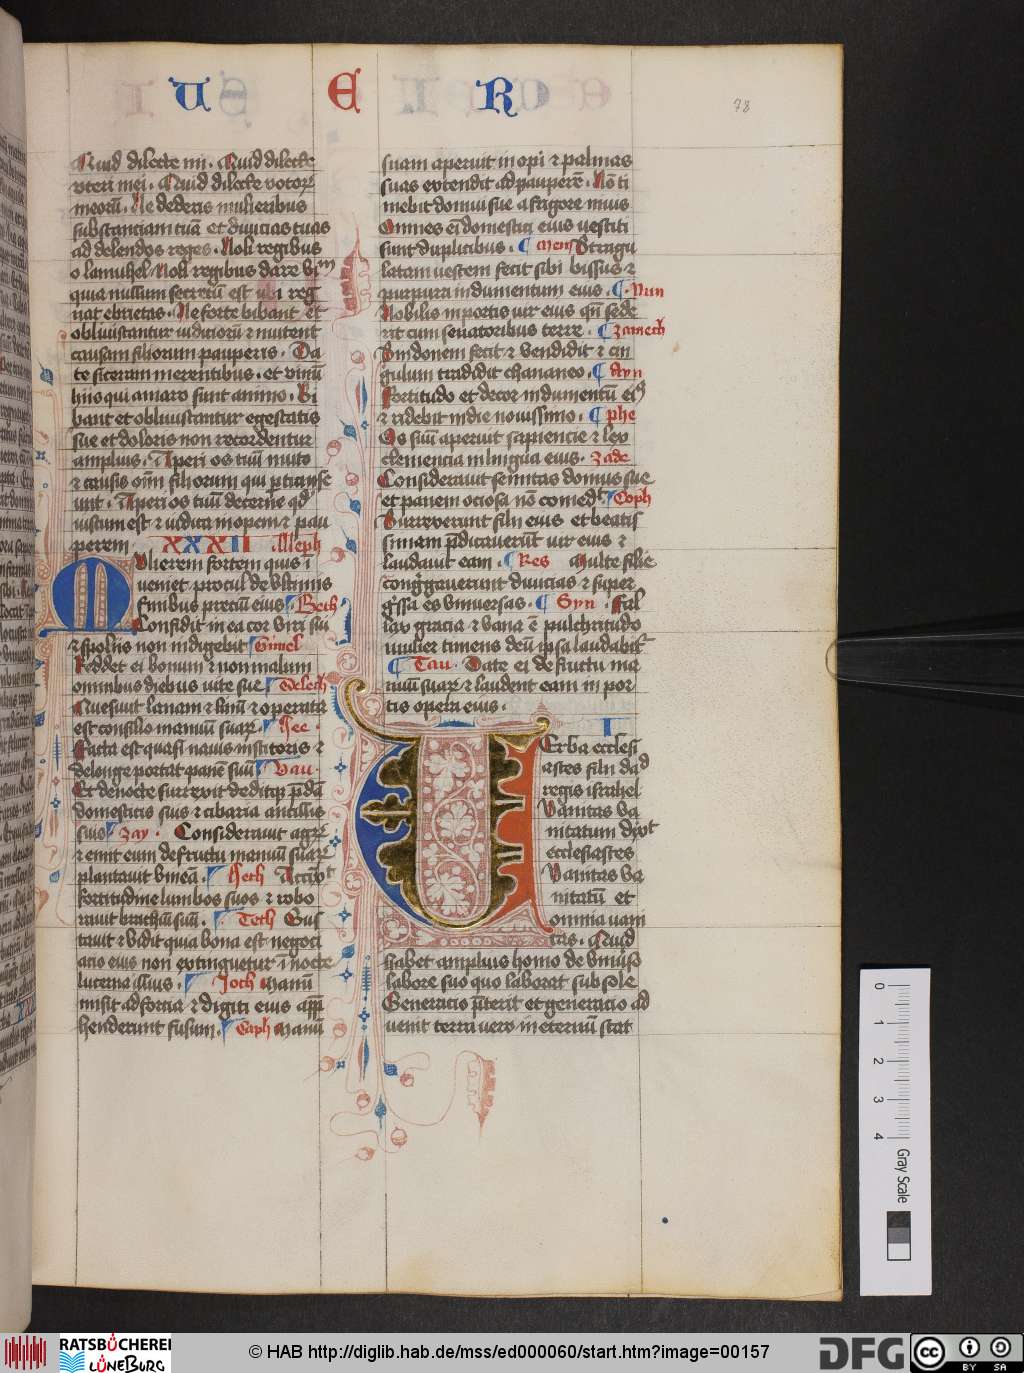 U E R
78
Quid dilecte mi. Quid dilecte
vteri mei. Quid dilecte votorum
meorum. Ne dederis mulieribus
substantiam tuam et diuicias tuas
ad delendos reges. Noli regibus
o lamuhel. Noli regibus dare vinum
quia nullum secretum est ubi reg
nat ebrietas. Ne forte bibant et
obliuiscantur iudiciorum et mutent
causam filiorum pauperis. Da
te siceram merentibus. et vinum
hiis qui amaro sunt animo. Bi
bant et obliuiscantur egestatis
sue et doloris non recordentur
amplius. Aperi os tuum muto
et causis omnium filiorum qui pertranse
unt. Aperi os tuum decerne quod
iustum est et iudica inopem et pau
perem. XXXII Aleph
Mulierem fortem quis in
ueniet procul de vltimis
finibus precium eius Beth
Confidit in ea cor viri sui
et spoliis non indigebit Gimel
Reddet ei bonum et non malum
omnibus diebus uite sue Delech
Quesiuit lanam et linum et operata
est consilio manuum suarum. Hee.
Facta est quasi nauis institoris et
de longe portat panem suum Vau.
Et de nocte surrexit deditque predam
domesticis suis et cibaria ancillis
suis Zay. Considerauit agrum
et emit eum de fructu manuum suarum
plantauit vineam. Heth Accinxit
fortitudine lumbos suos et robo
rauit brachium suum. Teth Gus
tauit et vidit quia bona est negoci
acio eius non extinguetur in nocte
lucerna illius. Joth Manum
misit ad forcia et digiti eius appre
henderunt fusum. Caph Manum
suam aperuit inopi et palmas
suas extendit ad pauperem. Non ti
mebit domui sue a frigore niuis
Omnes enim domestici eius vestiti
sunt duplicibus. Mem Stragu
latam uestem fecit sibi bissus et
purpura indumentum eius. Nun
Nobilis in portis vir eius quando sede
rit cum senatoribus terre. Zamech
Sindonem fecit et vendidit et cin
gulum tradidit chananeo. Ayn
Fortitudo et decor indumentum eius
et ridebit in die nouissimo. phe
Os suum aperuit sapiencie et lex
clemencia in lingua eius. Zade
Considerauit semitas domus sue
et panem ociosa non comedit Coph
Surrexerunt filii eius et beatis
simam predicauerunt vir eius et
laudauit eam. Res Multe filie
congregauerunt diuicias et super
gressa es vniuersas. Syn. Fal
lax gracia et vana est pulchritudo
mulier timens deum ipsa laudabitur
Tau. Date ei de fructu ma
nuum suarum et laudent eam in por
tis opera eius.
I
Verba ecclesi
astes filii dauid
regis israhel
Vanitas va
nitatum dixit
ecclesiastes
Vanitas va
nitatum et
omnia vani
tas. Quid
habet amplius homo de vniuerso
labore suo quo laborat sub sole
Generacio preterit et generacio ad
uenit terra vero in eternum stat
0 1 2 3 4
Gray Scale
RATSBÜCHEREI LÜNEBURG
© HAB http://diglib.hab.de/mss/ed000060/start.htm?image=00157
DFG
cc BY SA